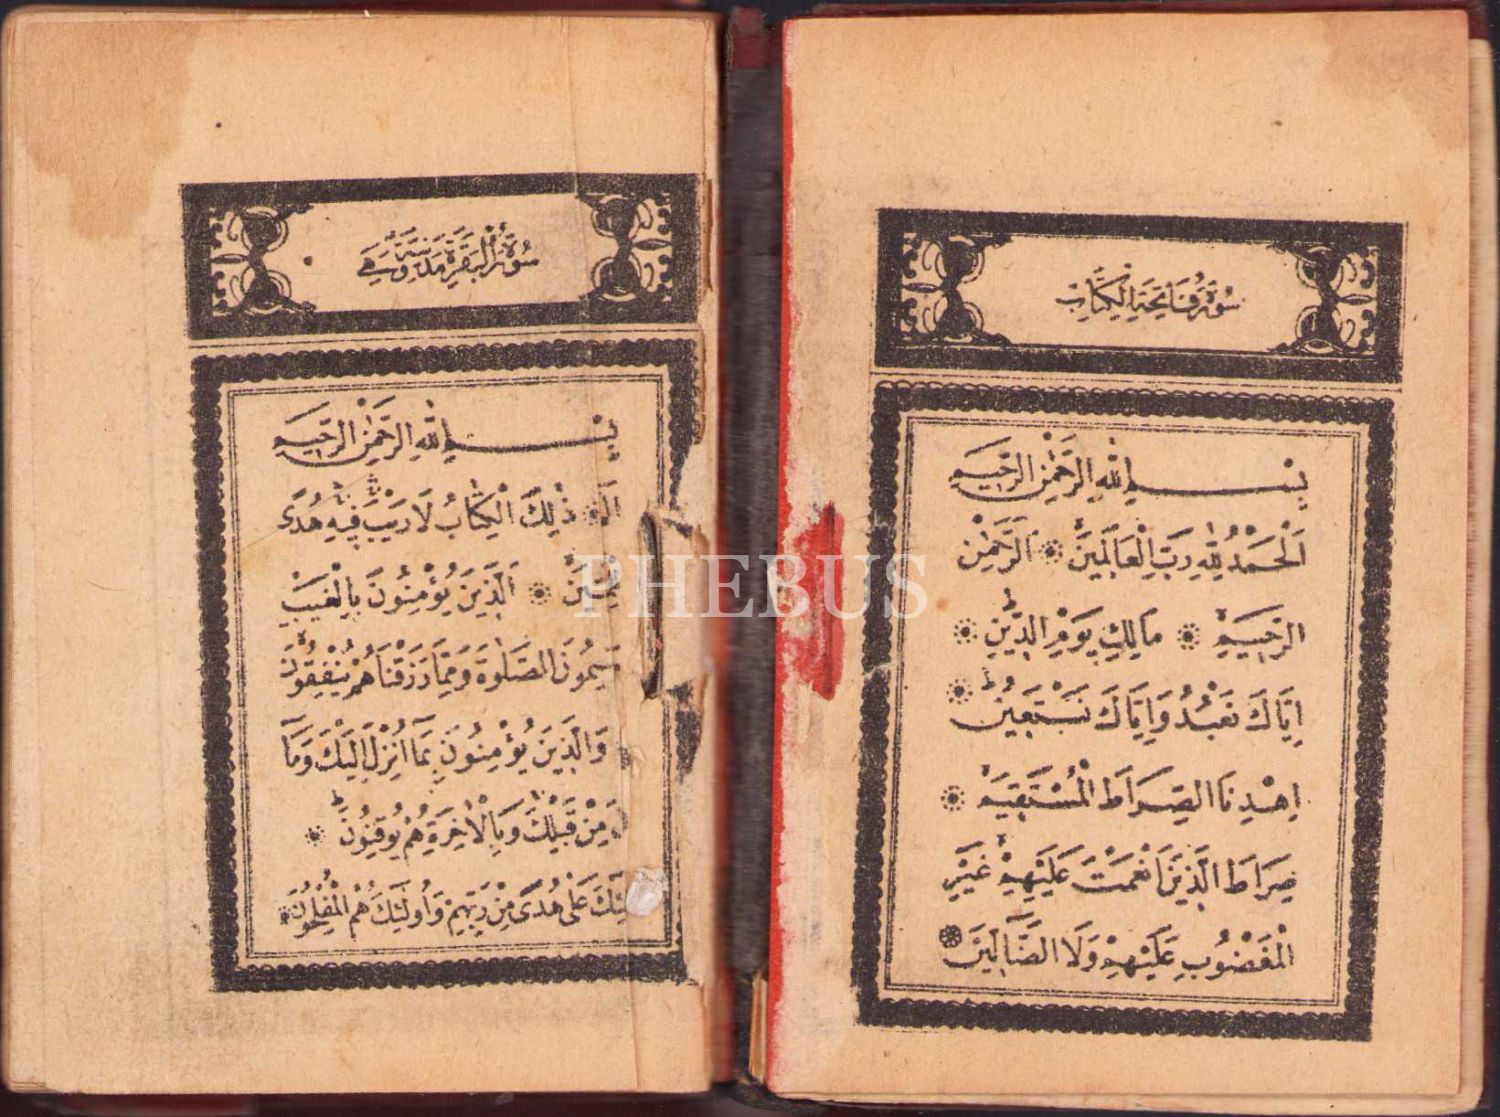 سورة فاتحة الكتاب
بسم الله الرحمن الرحيم
اَلْحَمْدُ لِلّٰهِ رَبِّ الْعَالَمِينَ الرَّحْمٰنِ
الرَّحِيمِ مَالِكِ يَوْمِ الدِّينِ
اِيَّاكَ نَعْبُدُ وَاِيَّاكَ نَسْتَعِينُ
اِهْدِنَا الصِّرَاطَ الْمُسْتَقِيمَ
صِرَاطَ الَّذِينَ اَنْعَمْتَ عَلَيْهِمْ غَيْرِ
الْمَغْضُوبِ عَلَيْهِمْ وَلَا الضَّالِّينَ
سورة البقرة مدنية وهي
بسم الله الرحمن الرحيم
الٓمٓ ذٰلِكَ الْكِتَابُ لَا رَيْبَ فِيهِ هُدًى
اَلَّذِينَ يُؤْمِنُونَ بِالْغَيْبِ
الصَّلٰوةَ وَمِمَّا رَزَقْنَاهُمْ يُنْفِقُونَ
وَالَّذِينَ يُؤْمِنُونَ بِمَا اُنْزِلَ اِلَيْكَ وَمَا
مِنْ قَبْلِكَ وَبِالْاٰخِرَةِ هُمْ يُوقِنُونَ
عَلٰى هُدًى مِنْ رَبِّهِمْ وَاُولٰئِكَ هُمُ الْمُفْلِحُونَ
PHEBUS